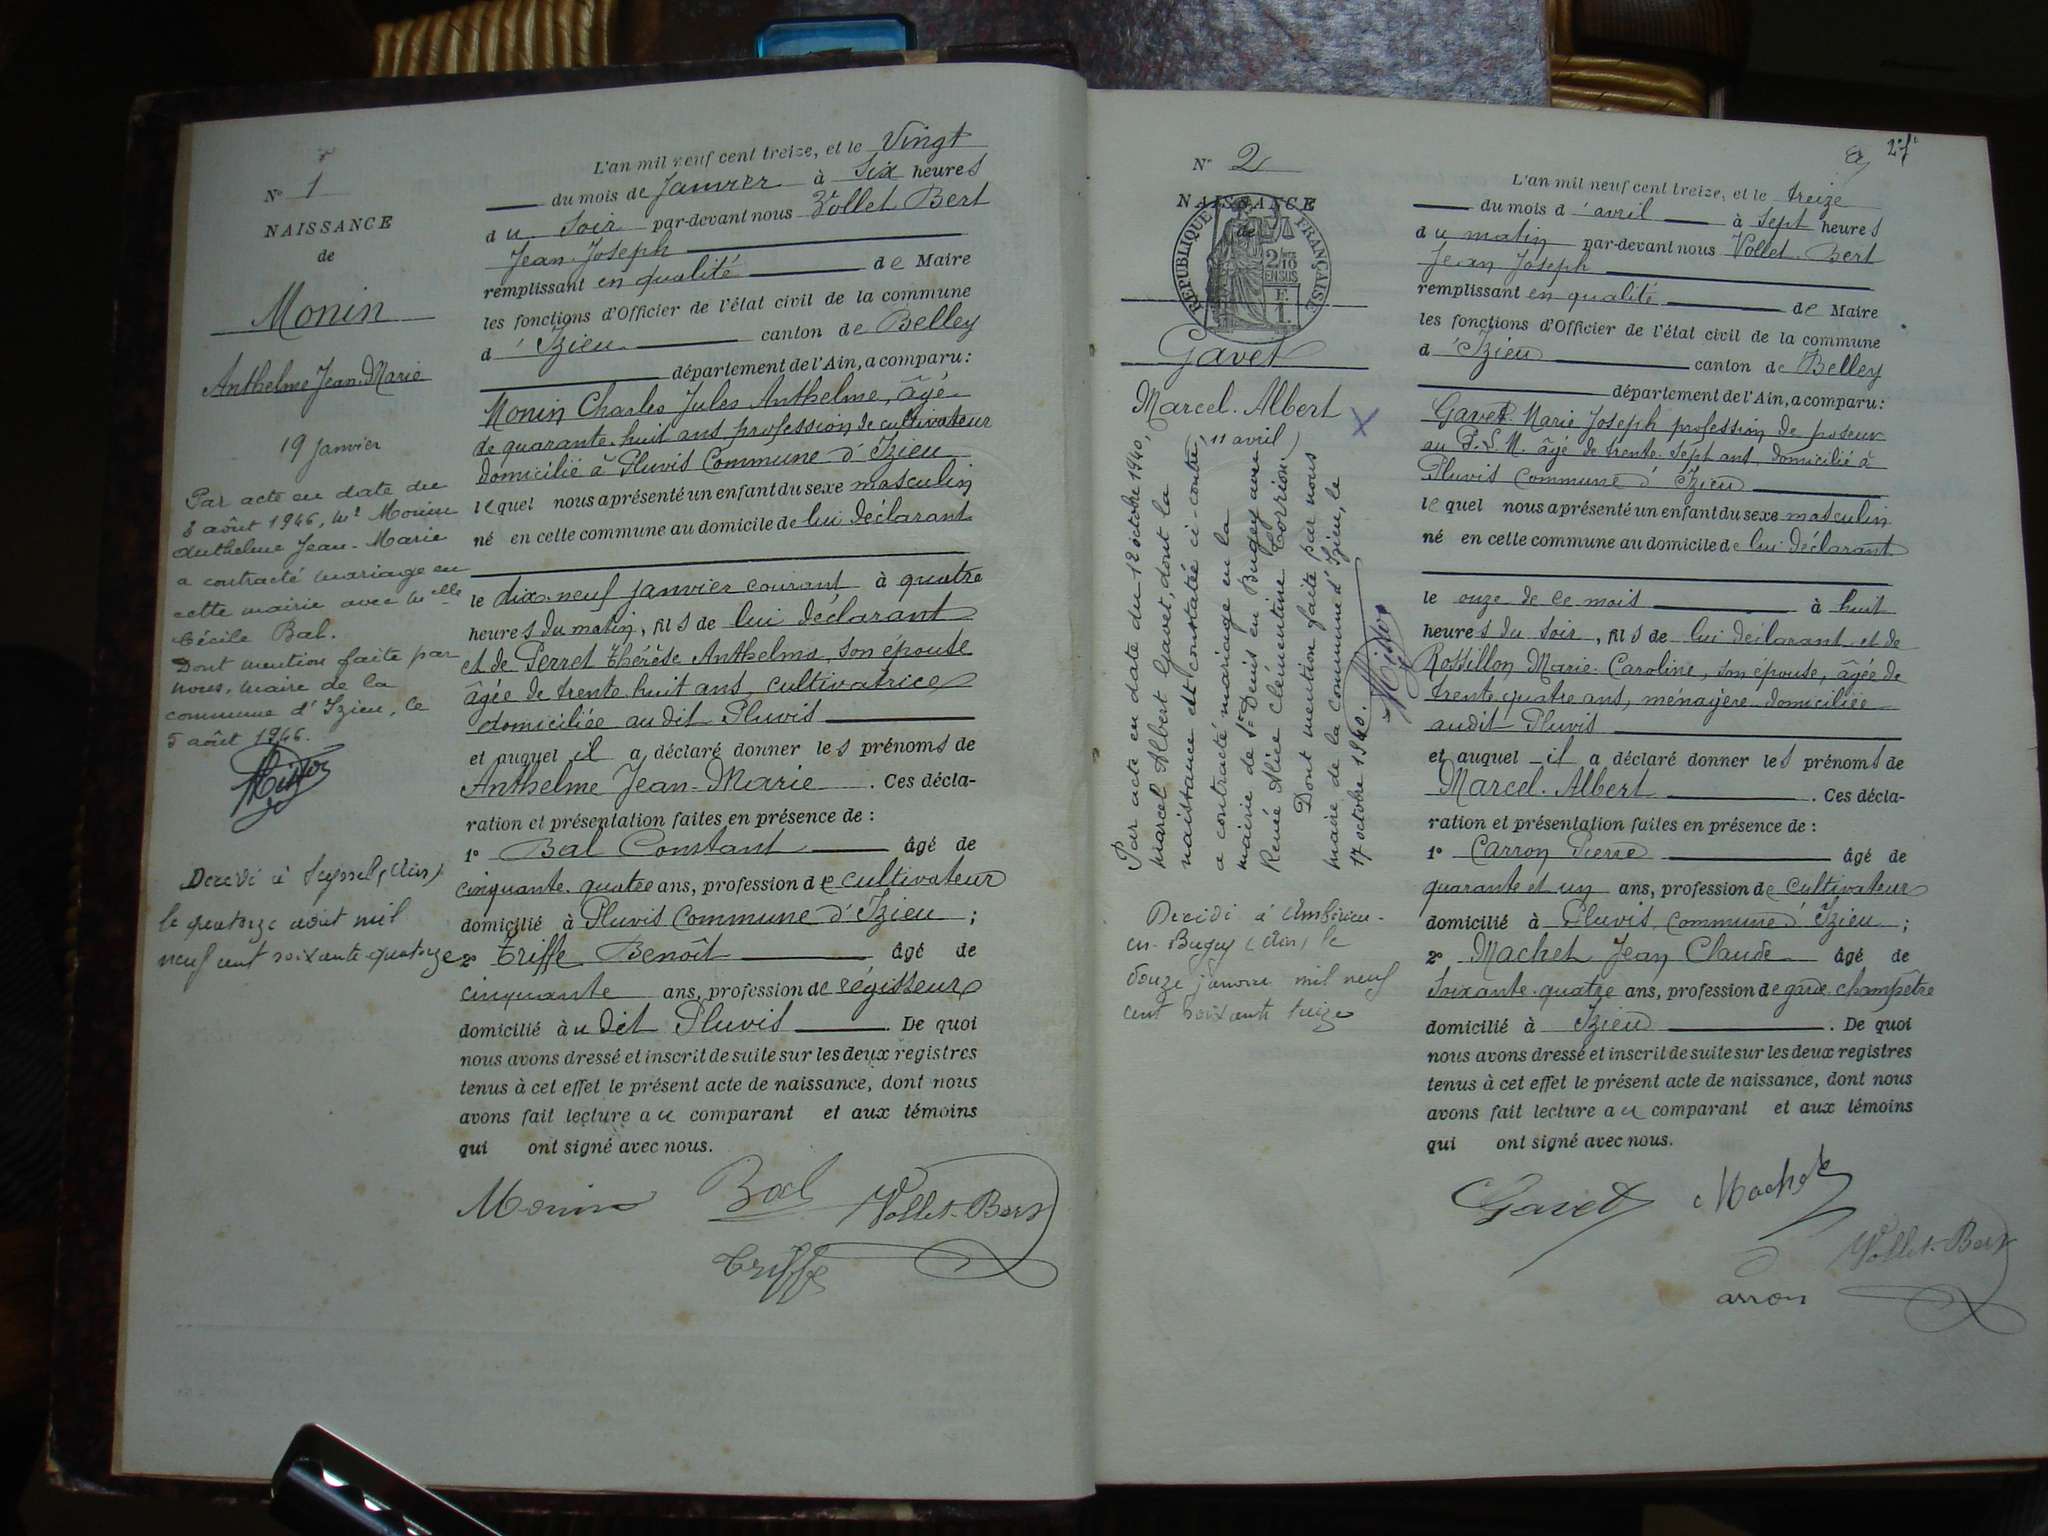 N° 1
NAISSANCE
de
Monin
Anthelme Jean-Marie
19 Janvier
Par acte en date du
3 août 1946, Mr Monin
Anthelme Jean-Marie
a contracté mariage en
cette mairie avec Melle
Cécile Bal.
Dont mention faite par
nous, maire de la
commune d'Izieu, le
5 août 1946.
Décédé à Seyssel, (Ain)
le quatorze août mil
neuf cent soixante-quatorze
L'an mil neuf cent treize, et le Vingt
du mois de Janvier à Six heures
du Soir par-devant nous Vollet Bert
Jean Joseph
remplissant en qualité de Maire
les fonctions d'Officier de l'état civil de la commune
d'Izieu canton de Belley
département de l'Ain, a comparu:
Monin Charles Jules Anthelme, âgé
de quarante-huit ans, profession de cultivateur
domicilié à Pluvis Commune d'Izieu
lequel nous a présenté un enfant du sexe masculin
né en cette commune au domicile de lui déclarant
le dix-neuf janvier courant à quatre
heures du matin, fils de lui déclarant
et de Perret Thérèse Anthelma, son épouse
âgée de trente huit ans, cultivatrice
domiciliée au dit Pluvis
et auquel il a déclaré donner les prénoms de
Anthelme Jean-Marie. Ces décla-
ration et présentation faites en présence de :
1° Bal Constant âgé de
cinquante-quatre ans, profession de cultivateur
domicilié à Pluvis Commune d'Izieu ;
2° Triffe Benoît âgé de
cinquante ans, profession de régisseur
domicilié au dit Pluvis. De quoi
nous avons dressé et inscrit de suite sur les deux registres
tenus à cet effet le présent acte de naissance, dont nous
avons fait lecture au comparant et aux témoins
qui ont signé avec nous.
Monin Bal Vollet-Bert
Triffe
2f
N° 2
NAISSANCE
de
REPUBLIQUE FRANÇAISE
Gavet
Marcel-Albert
(11 avril)
Par acte en date du 12 octobre 1940,
Marcel Albert Gavet, dont la
naissance est constatée ci-contre,
a contracté mariage en la
mairie de St Denis en Bugey avec
Renée Alice Clémentine
Dont mention faite par nous
maire de la Commune d'Izieu, le
17 octobre 1940.
Décédé à Ambérieu-
en-Bugey (Ain) le
douze janvier mil neuf
cent soixante treize
L'an mil neuf cent treize, et le treize
du mois d'avril à sept heures
du matin par-devant nous Vollet-Bert
Jean Joseph
remplissant en qualité de Maire
les fonctions d'Officier de l'état civil de la commune
d'Izieu canton de Belley
département de l'Ain, a comparu:
Gavet Marie Joseph profession de poseur
au P.L.M. âgé de trente-sept ans, domicilié à
Pluvis Commune d'Izieu
lequel nous a présenté un enfant du sexe masculin
né en cette commune au domicile de lui déclarant
le onze de ce mois à huit
heures du soir, fils de lui déclarant et de
Rossillon Marie-Caroline, son épouse, âgée de
trente quatre ans, ménagère domiciliée
audit Pluvis
et auquel il a déclaré donner les prénoms de
Marcel-Albert. Ces décla-
ration et présentation faites en présence de :
1° Carron Pierre âgé de
quarante et un ans, profession de cultivateur
domicilié à Pluvis, commune d'Izieu ;
2° Machet Jean Claude âgé de
soixante-quatre ans, profession de garde-champêtre
domicilié à Izieu. De quoi
nous avons dressé et inscrit de suite sur les deux registres
tenus à cet effet le présent acte de naissance, dont nous
avons fait lecture au comparant et aux témoins
qui ont signé avec nous.
Gavet Machet
Vollet-Bert
arron